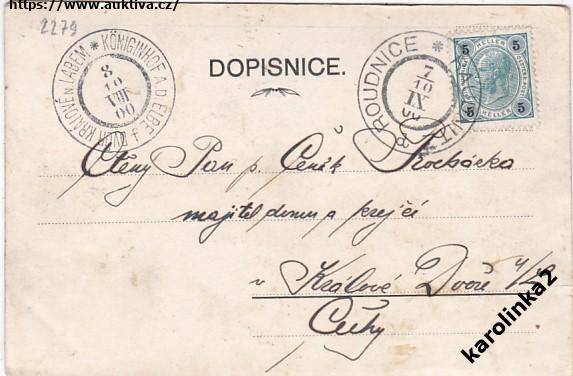 https://www.auktiva.cz/
2279
KÖNIGINHOF A.D. ELBE * DVŮR KRÁLOVÉ N. LABEM
8
10
VIII
00
DOPISNICE.
ROUDNICE *
7
10
IX
00
5 HELLER 5
5 HELLER 5
Ctěný Pan p. Čeněk
majitel domu a krejčí
v Králové Dvoře n/L
Čechy
karolinka2